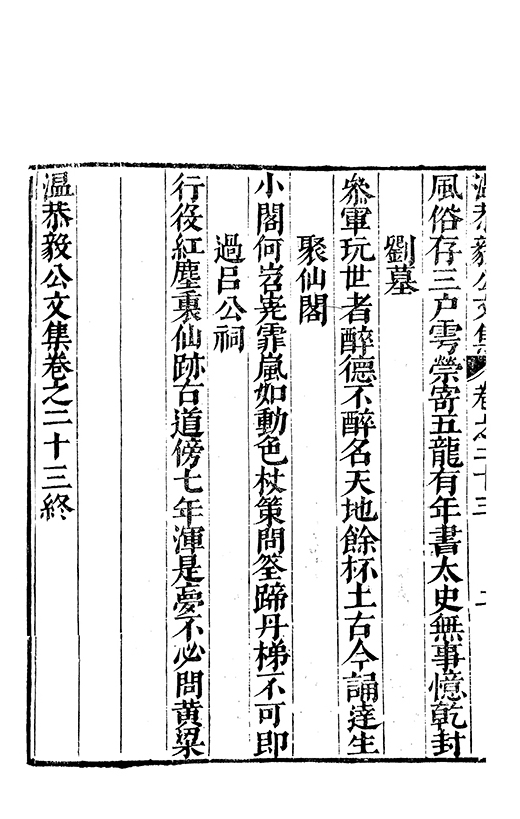 溫恭毅公文集 卷之二十三 二
風俗存三戶雩禜寄五龍有年書太史無事憶乾封
劉墓
叅軍玩世者醉德不醉名天地餘杯土古今誦達生
聚仙閣
小閣何岧嶤霏嵐如動色杖策問筌蹄丹梯不可即
過吕公祠
行役紅塵裏仙跡古道傍七年渾是夢不必問黄粱
溫恭毅公文集卷之二十三終